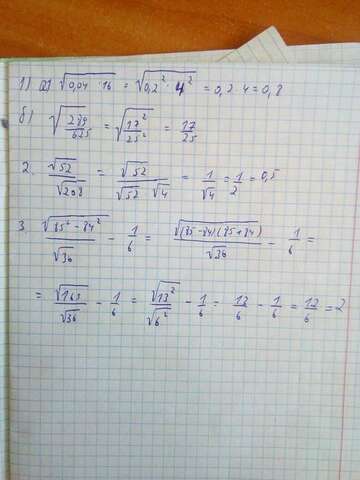 1) а) √(0,04 · 16) = √(0,2² · 4²) = 0,2 · 4 = 0,8
б) √(289/625) = √(17²/25²) = 17/25
2. √52/√208 = √52/(√52 · √4) = 1/√4 = 1/2 = 0,5
3. √(85² - 84²)/√36 - 1/6 = √((85 - 84)(85 + 84))/√36 - 1/6 =
= √169/√36 - 1/6 = √13²/√6² - 1/6 = 13/6 - 1/6 = 12/6 = 2